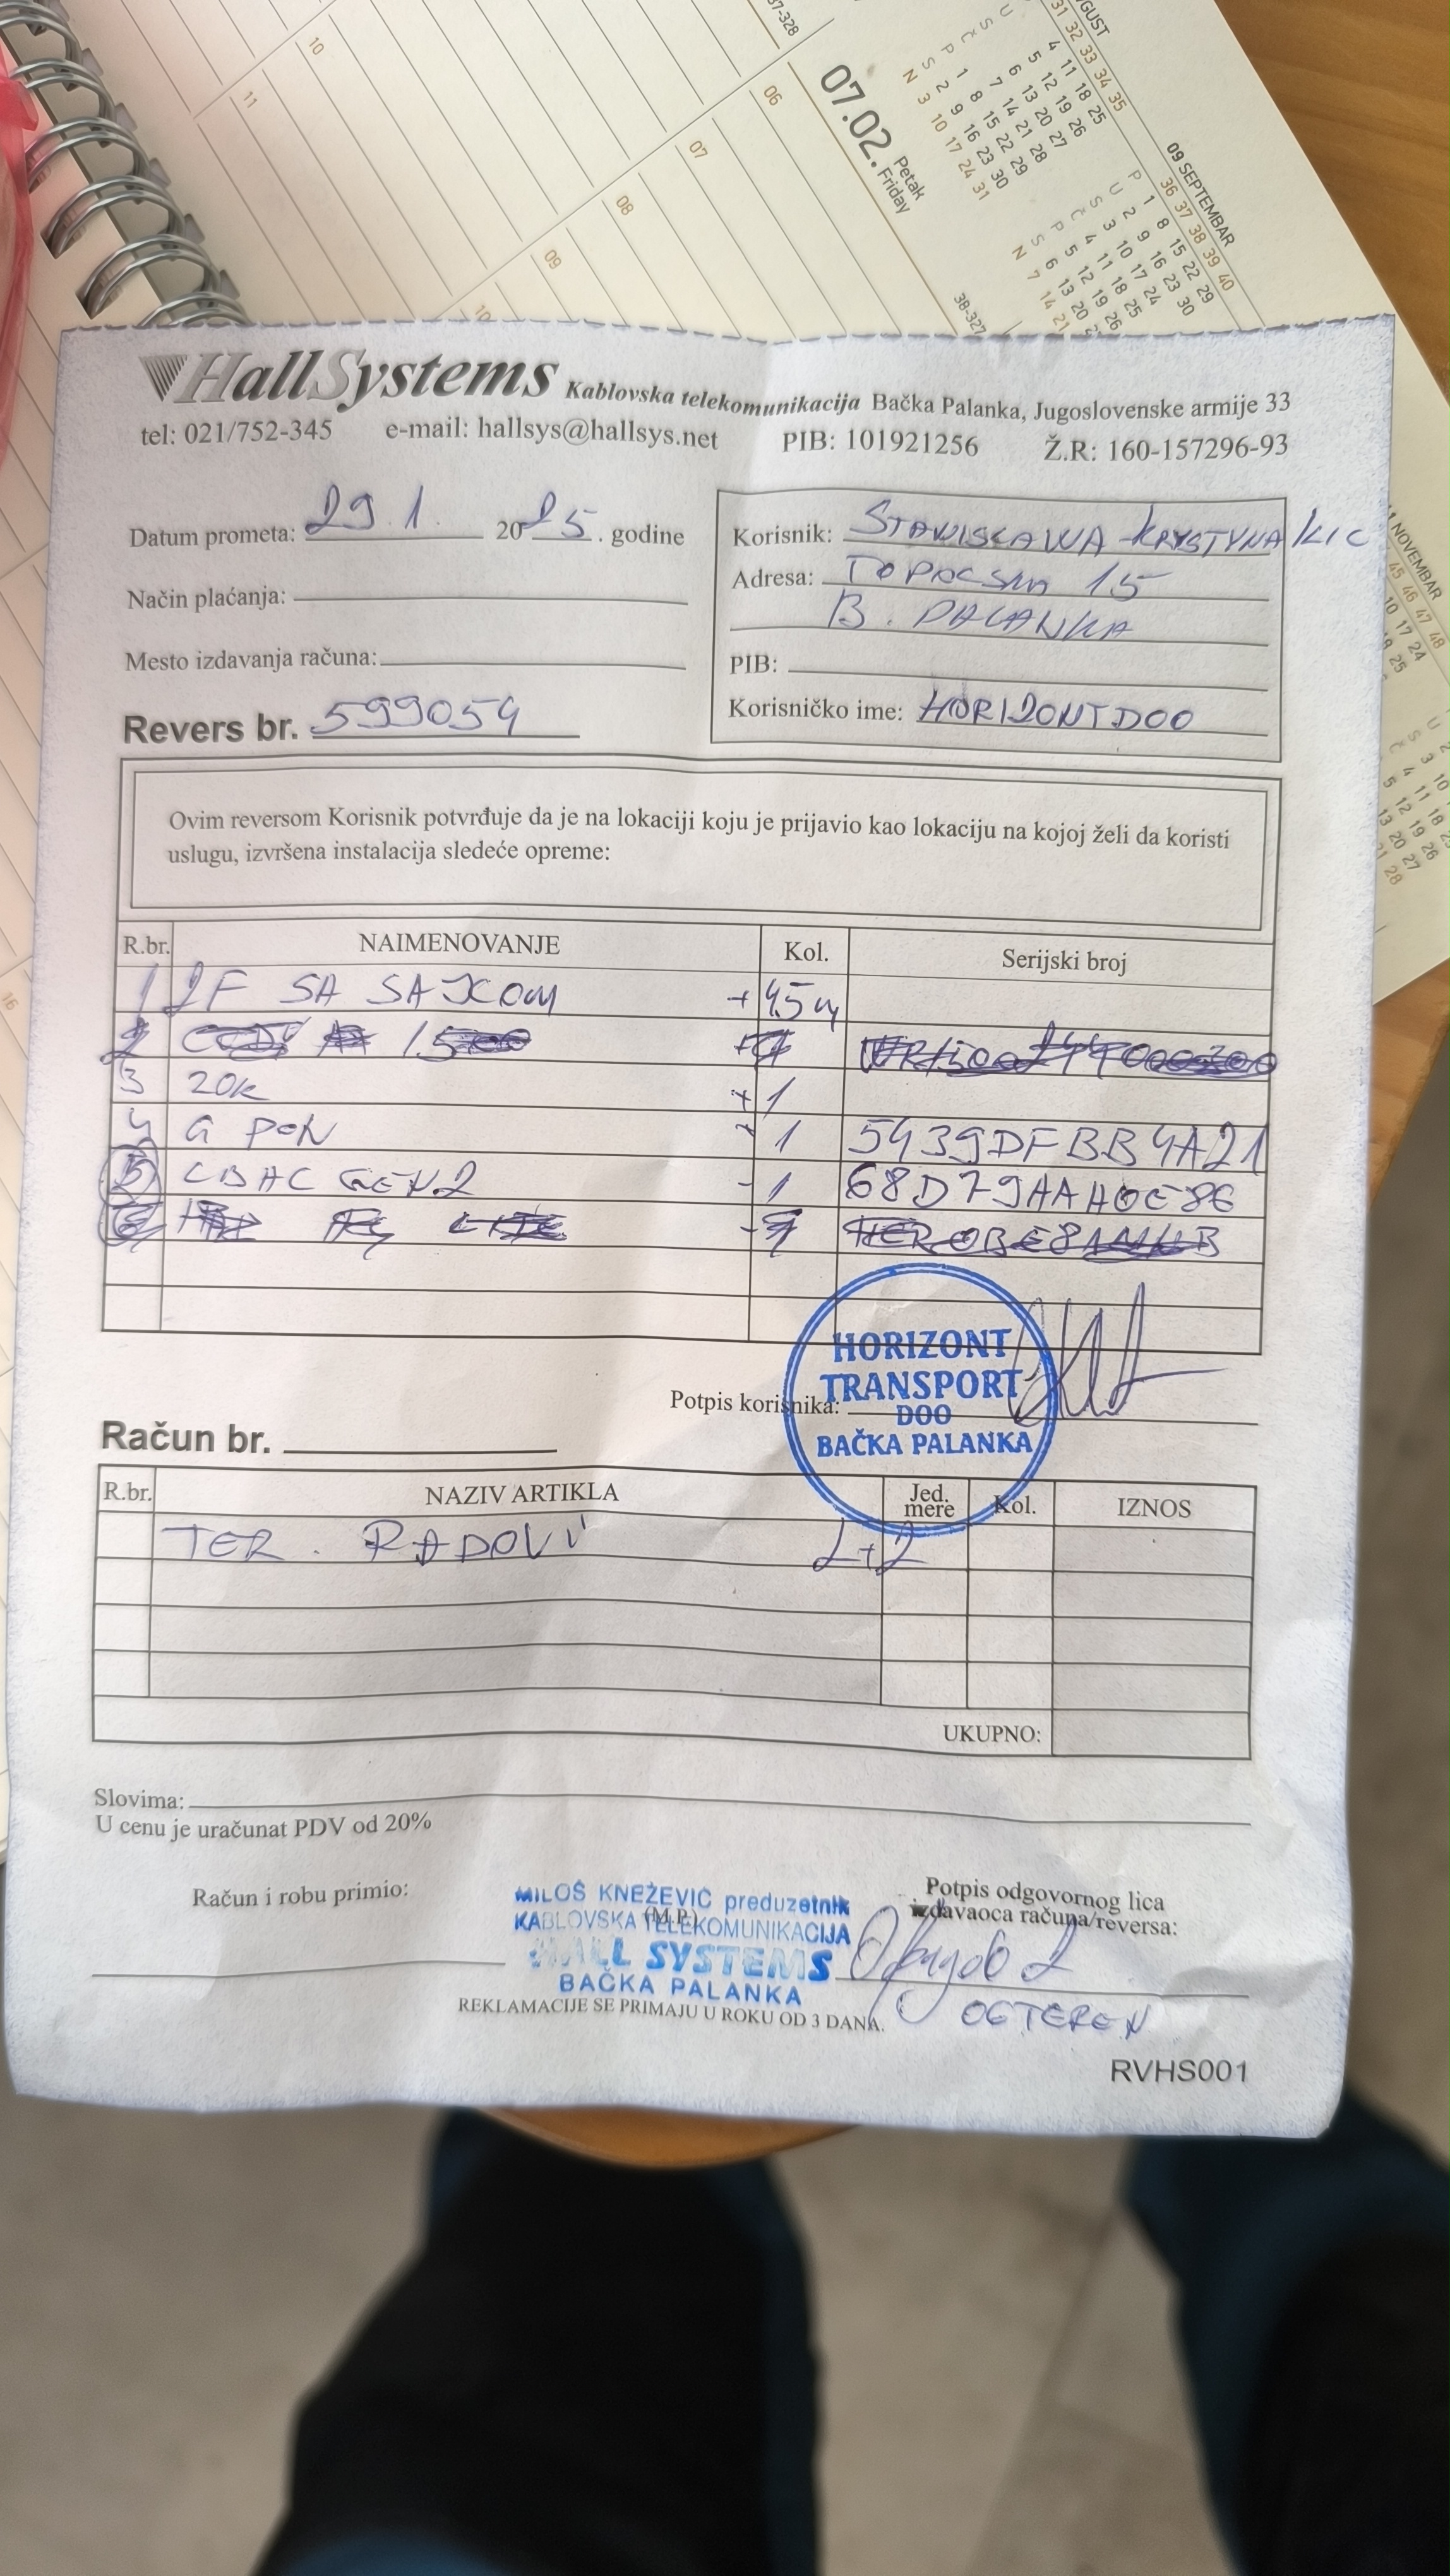 07.02.
Petak
Friday
09 SEPTEMBAR
HallSystems Kablovska telekomunikacija Bačka Palanka, Jugoslovenske armije 33
tel: 021/752-345 e-mail: hallsys@hallsys.net PIB: 101921256 Ž.R: 160-157296-93
Datum prometa: 29.1. 2025. godine
Način plaćanja:
Mesto izdavanja računa:
Revers br. 599054
Korisnik: STANISLAWA KRYSTYNA KIC
Adresa: 15
B. PALANKA
PIB:
Korisničko ime: HORIZONTDOO
Ovim reversom Korisnik potvrđuje da je na lokaciji koju je prijavio kao lokaciju na kojoj želi da koristi
uslugu, izvršena instalacija sledeće opreme:
R.br. NAIMENOVANJE Kol. Serijski broj
1 2F SA SAJLOM + 45m
2
3 20k + 1
4 G PON - 1 5439DFBB4A21
5 CBAC GEN2 - 1 68D79AAH0E86
HORIZONT
TRANSPORT
DOO
BAČKA PALANKA
Potpis korisnika:
Račun br.
R.br. NAZIV ARTIKLA Jed. mere Kol. IZNOS
TER. RADOVI 2+2
UKUPNO:
Slovima:
U cenu je uračunat PDV od 20%
Račun i robu primio:
(M.P.)
MILOŠ KNEŽEVIĆ preduzetnik
KABLOVSKA TELEKOMUNIKACIJA
HALL SYSTEMS
BAČKA PALANKA
Potpis odgovornog lica
izdavaoca računa/reversa:
REKLAMACIJE SE PRIMAJU U ROKU OD 3 DANA.
RVHS001